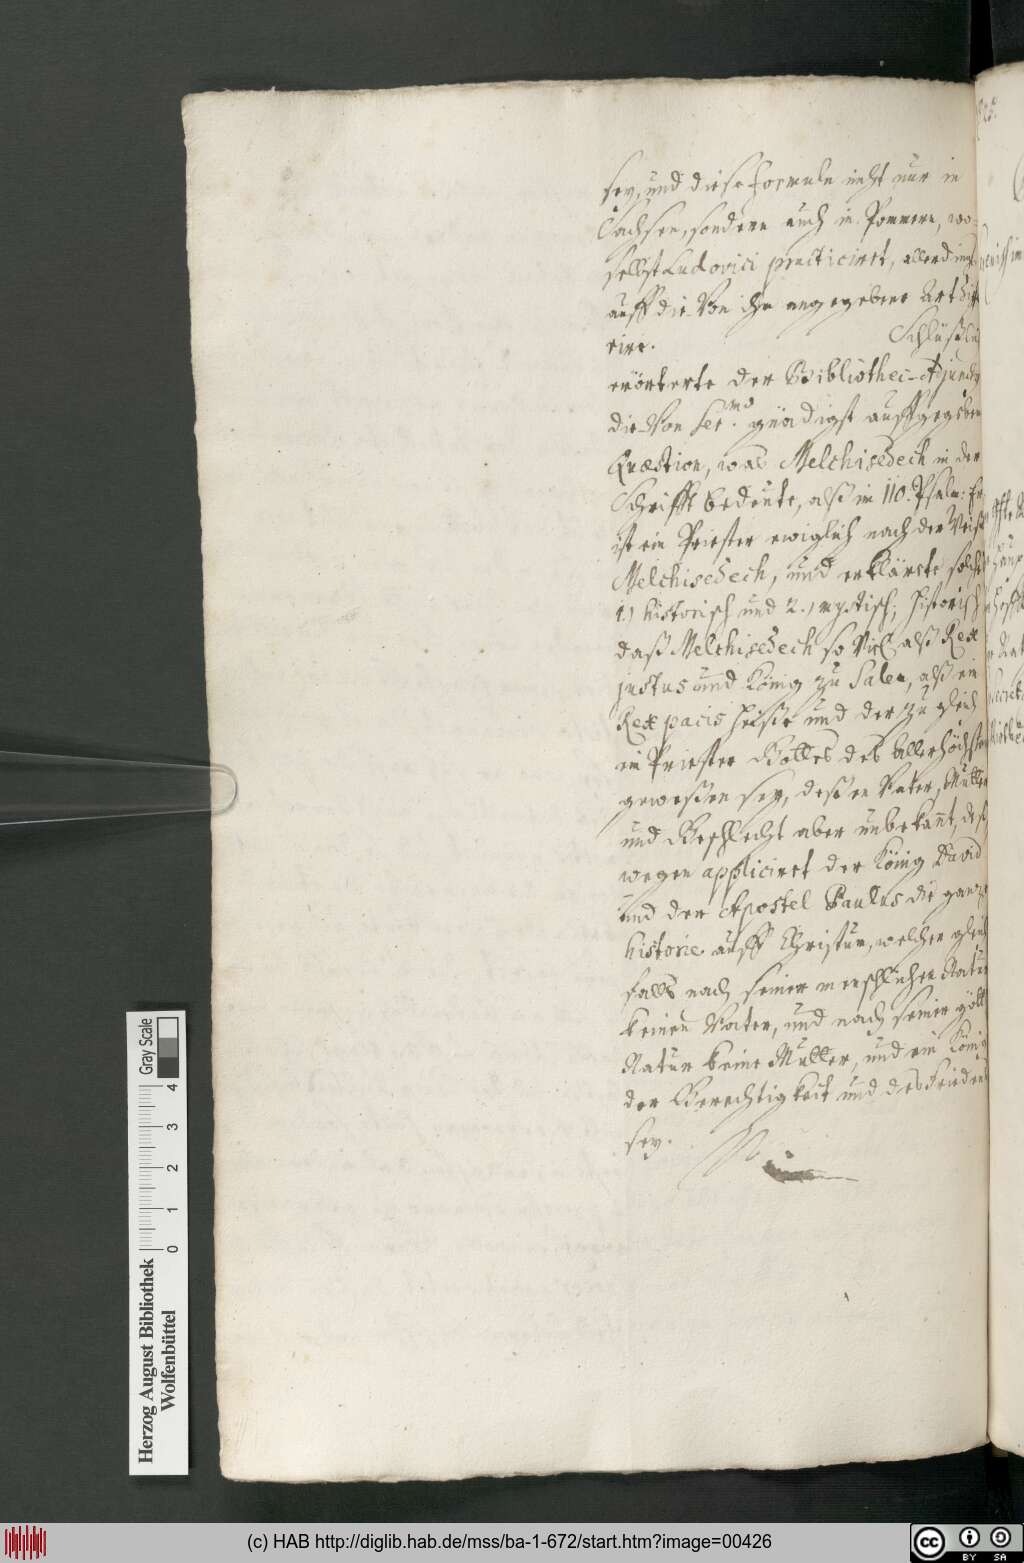 sey, und diese formuln nicht nur in
Sachsen, sondern auch in Pommern, wo-
selbst Ludovici practiciret, allerding
auff die Von ihm angegebene Art
Schlüßlich
erörterte der Bibliothec-Adjunctus
die Von Ser.mo gnädigst auffgegeben
Quæstion, was Melchisedech in der
Schrifft bedeute, alß im 110. Psalm: Er
ist ein Priester ewiglich nach der Weise
Melchisedech, und erklärte solche
1.) historisch und 2.) mystisch; historisch
daß Melchisedech so Viel alß Rex
justus und König zu Salem, alß ein
Rex pacis heiße und der zugleich
ein Priester Gottes des Allerhöchsten
geweßen sey, deßen Vater, Mutter
und Geschlecht aber unbekannt, deß-
wegen appliciret der König David
und der Apostel Paulus die gantze
historie auff Christum, welcher gleich
falls nach seiner menschlichen Natur
keinen Vater, und nach seiner göttl.
Natur keine Mutter, und ein König
der Gerechtigkeit und des Friedens
sey.
Herzog August Bibliothek
Wolfenbüttel
0 1 2 3 4
Gray Scale
(c) HAB http://diglib.hab.de/mss/ba-1-672/start.htm?image=00426
cc BY SA